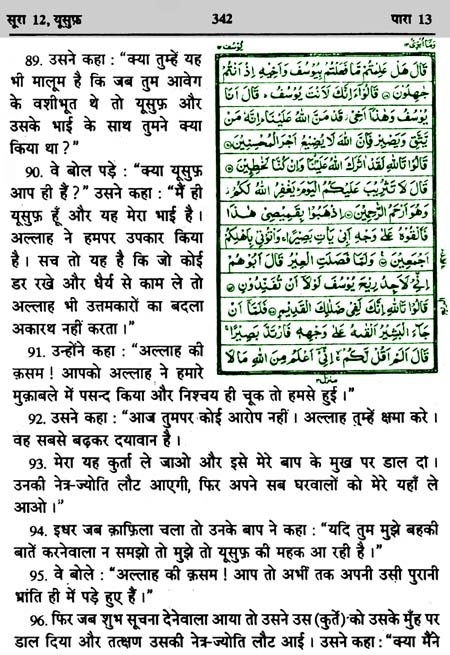 सूरा 12, यूसुफ़
342
पारा 13
89. उसने कहा : “क्या तुम्हें यह
भी मालूम है कि जब तुम आवेग
के वशीभूत थे तो यूसुफ़ और
उसके भाई के साथ तुमने क्या
किया था ?”
90. वे बोल पड़े : “क्या यूसुफ़
आप ही हैं ?” उसने कहा : “मैं ही
यूसुफ़ हूँ और यह मेरा भाई है।
अल्लाह ने हमपर उपकार किया
है। सच तो यह है कि जो कोई
डर रखे और धैर्य से काम ले तो
अल्लाह भी उत्तमकारों का बदला
अकारथ नहीं करता।”
91. उन्होंने कहा : “अल्लाह की
क़सम ! आपको अल्लाह ने हमारे
मुक़ाबले में पसन्द किया और निश्चय ही चूक तो हमसे हुई।”
92. उसने कहा : “आज तुमपर कोई आरोप नहीं। अल्लाह तुम्हें क्षमा करे।
वह सबसे बढ़कर दयावान है।
93. मेरा यह कुर्ता ले जाओ और इसे मेरे बाप के मुख पर डाल दो।
उनकी नेत्र-ज्योति लौट आएगी, फिर अपने सब घरवालों को मेरे यहाँ ले
आओ।”
94. इधर जब क़ाफ़िला चला तो उनके बाप ने कहा : “यदि तुम मुझे बहकी
बातें करनेवाला न समझो तो मुझे तो यूसुफ़ की महक आ रही है।”
95. वे बोले : “अल्लाह की क़सम ! आप तो अभी तक अपनी उसी पुरानी
भ्रांति ही में पड़े हुए हैं।”
96. फिर जब शुभ सूचना देनेवाला आया तो उसने उस (कुर्ते) को उसके मुँह पर
डाल दिया और तत्क्षण उसकी नेत्र-ज्योति लौट आई। उसने कहा : “क्या मैंने
يوسف
وما ابرئ
قَالَ هَلْ عَلِمْتُمْ مَّا فَعَلْتُمْ بِيُوسُفَ وَأَخِيهِ إِذْ أَنْتُمْ
جٰهِلُونَ قَالُوٓا ءَاِنَّكَ لَاَنْتَ يُوسُفُ قَالَ أَنَا
يُوسُفُ وَهٰذَآ أَخِي قَدْ مَنَّ اللهُ عَلَيْنَا إِنَّهُ مَنْ
يَّتَّقِ وَيَصْبِرْ فَإِنَّ اللهَ لَا يُضِيعُ أَجْرَ الْمُحْسِنِينَ
قَالُوا تَاللهِ لَقَدْ اٰثَرَكَ اللهُ عَلَيْنَا وَإِنْ كُنَّا لَخٰطِـِٕينَ
قَالَ لَا تَثْرِيبَ عَلَيْكُمُ الْيَوْمَ يَغْفِرُ اللهُ لَكُمْ
وَهُوَ أَرْحَمُ الرّٰحِمِينَ اِذْهَبُوا بِقَمِيصِي هٰذَا
فَأَلْقُوهُ عَلٰى وَجْهِ أَبِي يَأْتِ بَصِيرًا وَأْتُونِي بِأَهْلِكُمْ
أَجْمَعِينَ وَلَمَّا فَصَلَتِ الْعِيرُ قَالَ أَبُوهُمْ
إِنِّي لَأَجِدُ رِيحَ يُوسُفَ لَوْلَآ أَنْ تُفَنِّدُونِ
قَالُوا تَاللهِ إِنَّكَ لَفِي ضَلٰلِكَ الْقَدِيمِ فَلَمَّآ أَنْ
جَآءَ الْبَشِيرُ أَلْقٰىهُ عَلٰى وَجْهِهٖ فَارْتَدَّ بَصِيرًا
قَالَ أَلَمْ أَقُلْ لَّكُمْ إِنِّيٓ أَعْلَمُ مِنَ اللهِ مَا لَا